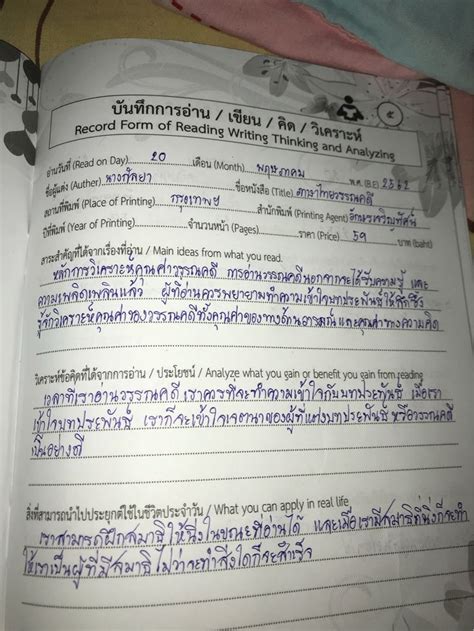 ๕
บันทึกการอ่าน / เขียน / คิด / วิเคราะห์
Record Form of Reading Writing Thinking and Analyzing
อ่านวันที่ (Read on Day) 20 เดือน (Month) พฤษภาคม พ.ศ. (B.E) 2562
ชื่อผู้แต่ง (Auther) นางกัลยา ชื่อหนังสือ (Title) ภาษาไทยวรรณคดี
สถานที่พิมพ์ (Place of Printing) กรุงเทพฯ สำนักพิมพ์ (Printing Agent) อักษรเจริญทัศน์
ปีที่พิมพ์ (Year of Printing) จำนวนหน้า (Pages) ราคา (Price) 59 บาท (baht)
สาระสำคัญที่ได้จากเรื่องที่อ่าน / Main ideas from what you read.
หลักการวิเคราะห์คุณค่าวรรณคดี การอ่านวรรณคดีนอกจากจะได้รับความรู้ และ
ความเพลิดเพลินแล้ว ผู้ที่อ่านควรพยายามทำความเข้าใจบทประพันธ์ให้ลึกซึ้ง
รู้จักวิเคราะห์คุณค่าของวรรณคดีทั้งคุณค่าของทางด้านอารมณ์และคุณค่าของความคิด
วิเคราะห์ข้อคิดที่ได้จากการอ่าน / ประโยชน์ / Analyze what you gain or benefit you gain from reading
เวลาที่เราอ่านวรรณคดี เราควรที่จะทำความเข้าใจกับบทประพันธ์ เมื่อเรา
เข้าใจบทประพันธ์ เราก็จะเข้าใจเจตนาของผู้ที่แต่งบทประพันธ์ หรือวรรณคดี
เป็นอย่างดี
สิ่งที่สามารถนำไปประยุกต์ใช้ในชีวิตประจำวัน / What you can apply in real life
เราสามารถฝึกสมาธิให้นิ่งในขณะที่อ่านได้ และเมื่อเรามีสมาธิที่นิ่งก็จะทำ
ให้เราเป็นผู้ที่มีสมาธิ ไม่ว่าจะทำสิ่งใดก็จะสำเร็จ